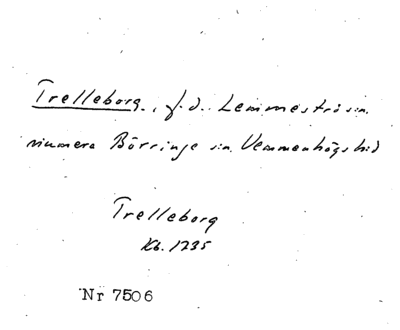 Trelleborg, f.d. Lemmeströ sn.
numera Börringe sn Vemmenhögs hd
Trelleborg
Kb. 1735
Nr 7506